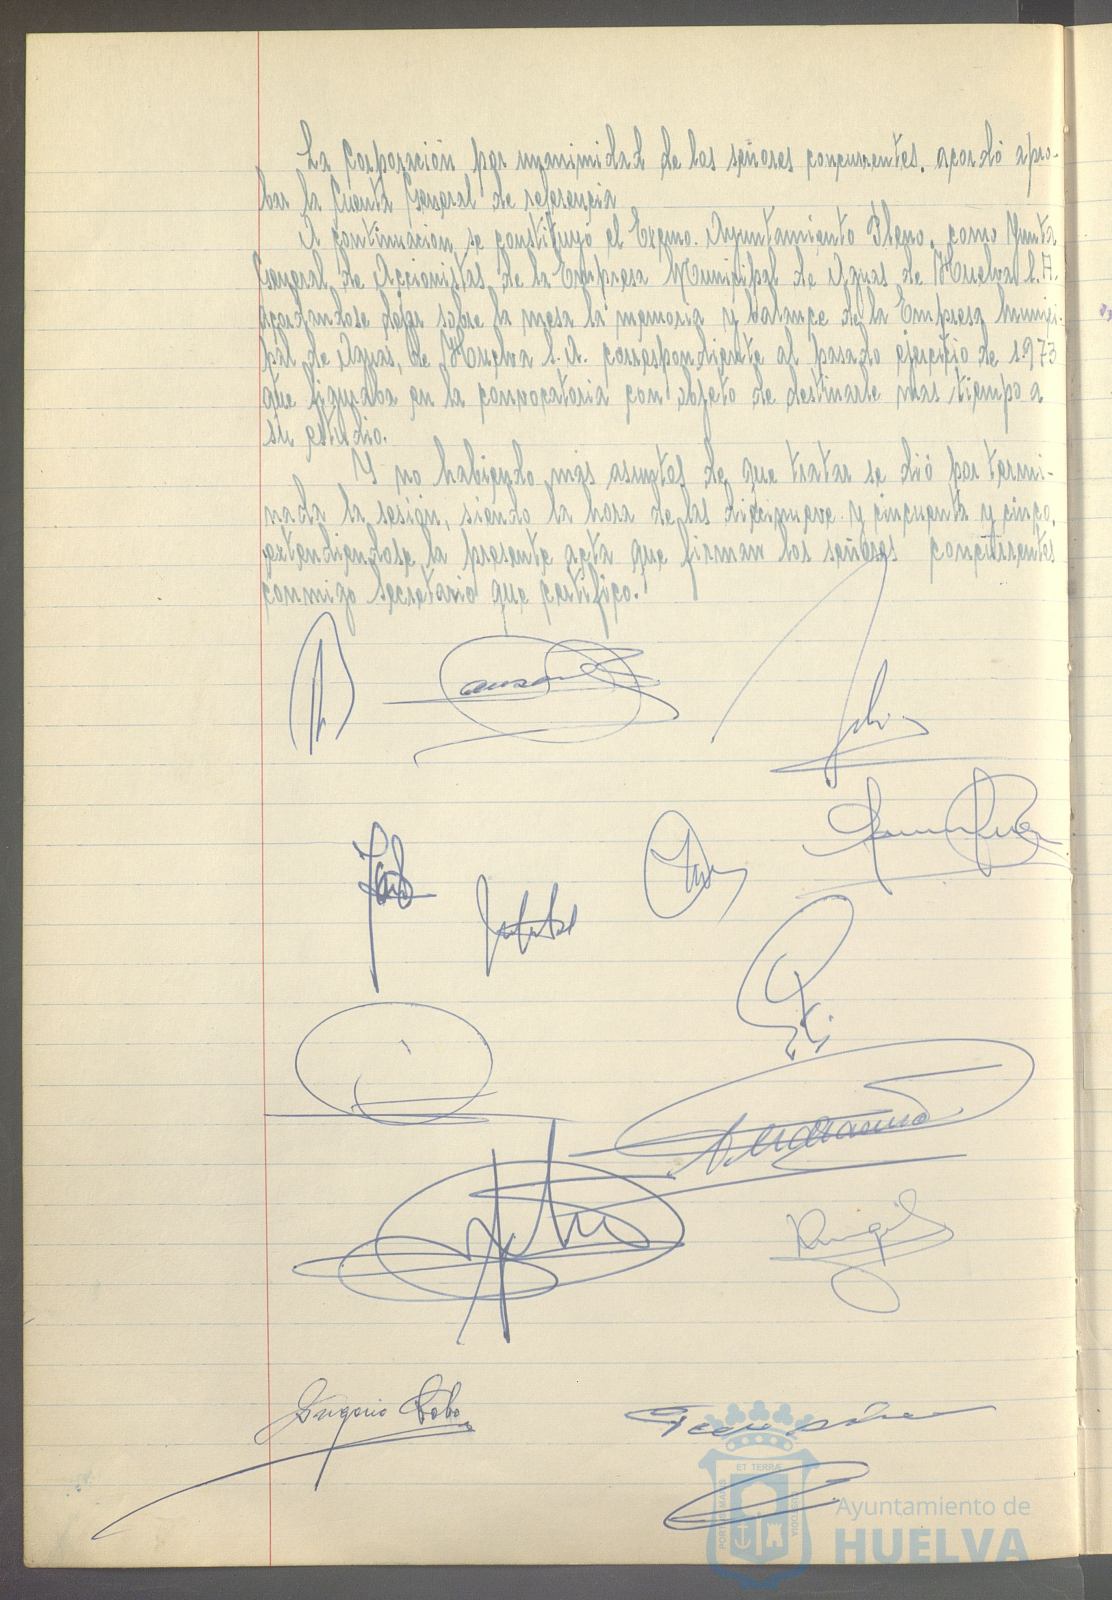 La Corporación por unanimidad de los señores concurrentes, acordó apro-
bar la Cuenta General de referencia
A continuación se constituyó el Excmo. Ayuntamiento Pleno, como Junta
General de Accionistas de la Empresa Municipal de Aguas de Huelva S.A.
acordandose dejar sobre la mesa la memoria y balance de la Empresa Munici-
pal de Aguas, de Huelva S.A. correspondiente al pasado ejercicio de 1973
que figuraba en la convocatoria con objeto de destinarle mas tiempo a
su estudio.
Y no habiendo más asuntos de que tratar se dió por termi-
nada la sesión, siendo la hora de las diecinueve y cincuenta y cinco,
extendiendose la presente acta que firman los señores concurrentes
conmigo Secretario que certifico.
Gregorio Lobo
ET TERRÆ
PORTUS MARIS
CUSTODIA
Ayuntamiento de
HUELVA